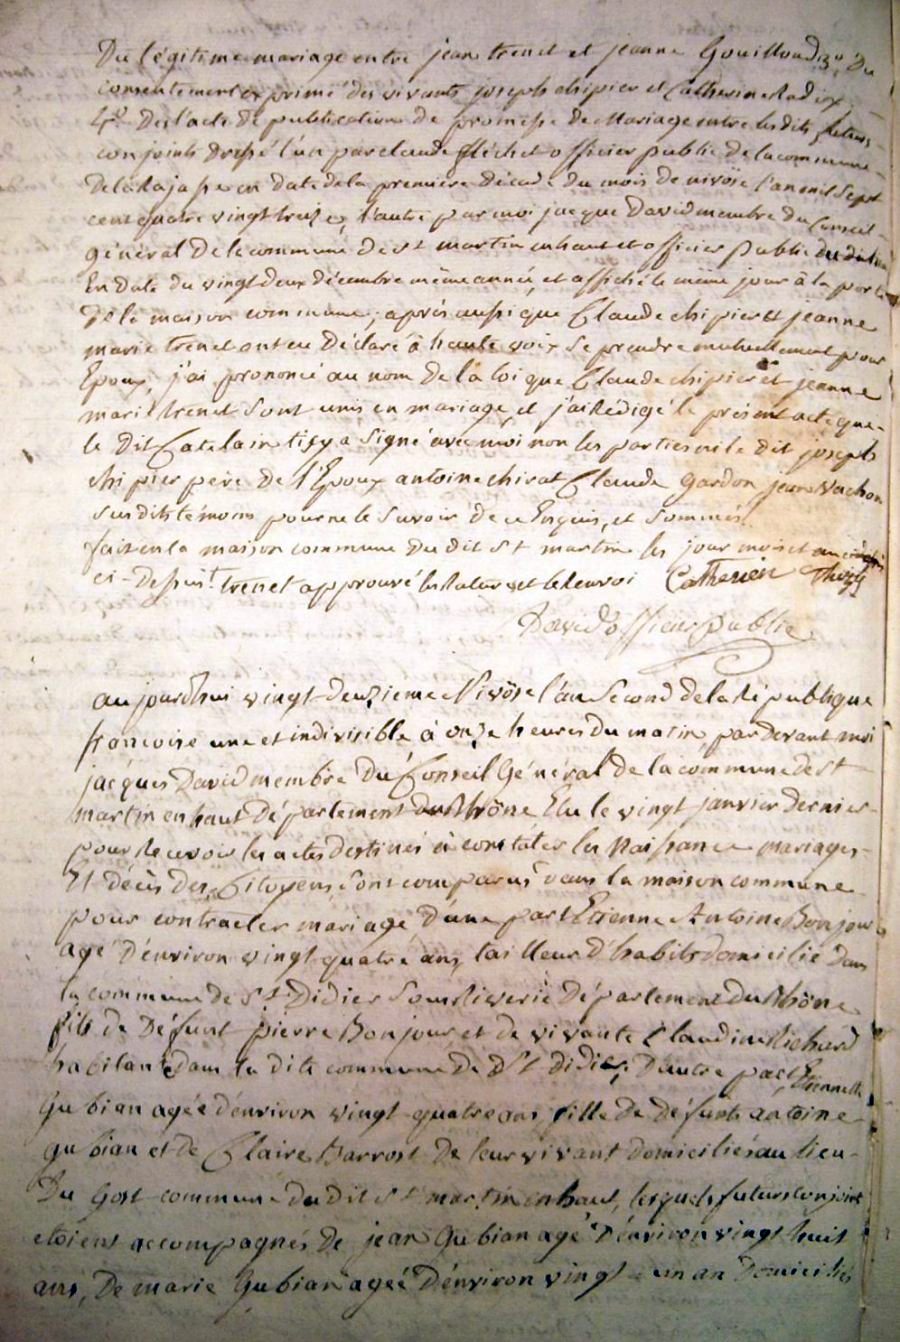 Du légitime mariage entre jean trenet et jeanne Gouilloud, 3º Du
consentement exprimé des vivants joseph chipier et Catherine Radix
4º De l'acte de publications de promesse de Mariage entre les dits futurs
conjoints dressé l'un par claude fléchet officier public de la commune
De la Rajasse en date de la première Décade du mois de nivôse l'an mil sept
cent quatre vingt treize, l'autre par moi jacque David membre du Conseil
général De la commune De st martin enhaut et officier public du dit lieu
En date du vingt deux décembre même année, et affiché le même jour à la porte
De la maison commune, après aussi que Claude chipier et jeanne
marie trenet ont eu Déclaré à haute voix se prendre mutuellement pour
Epoux, j'ai prononcé au nom De la loi que Claude chipier et jeanne
marie trenet sont unis en mariage, et j'ai Rédigé le présent acte que
le Dit Catelain tisy a Signé avec moi non les parties ni le dit joseph
chipier père De l'Epoux antoine chirat Claude gardon jean Vachon
susdits témoins pour ne le savoir de ce Enquis, et sommés
fait en la maison commune Du dit st martin les jour mois et an
ci-Dessus trenet approuvé la Rature et le Renvoi
David officier public
aujourdhui vingt-deuzieme Nivôse l'an Second de la République
françoise une et indivisible à onze heures du matin, par Devant moi
jacques David membre du Conseil Général de la commune de st
martin en haut Département du Rhône Elu le vingt janvier dernier
pour Recevoir les actes destinés à constater les Naissance mariages
Et décès des Citoyens, sont comparus dans la maison commune
pour contracter mariage, D'une part Etienne Antoine Bonjour
agé D'environ vingt quatre ans, tailleur d'habits domicilié dans
la commune de St Didier Sous Riverie Département du Rhône
fils de Défunt pierre Bonjour et de vivante Claudine Richard
habitante Dans la dite commune De St didier, D'autre part, Etiennette
Gubian agée d'environ vingt-quatre ans, fille De défunts antoine
gubian et de Claire Barrost De leur vivant domiciliés au lieu
Du Gost commune du dit st martin enhaut, lesquels futurs conjoint
etoient accompagnés De jean Gubian agé D'environ vingt huit
ans, De marie Gubian agée D'environ vingt-un an Domiciliés